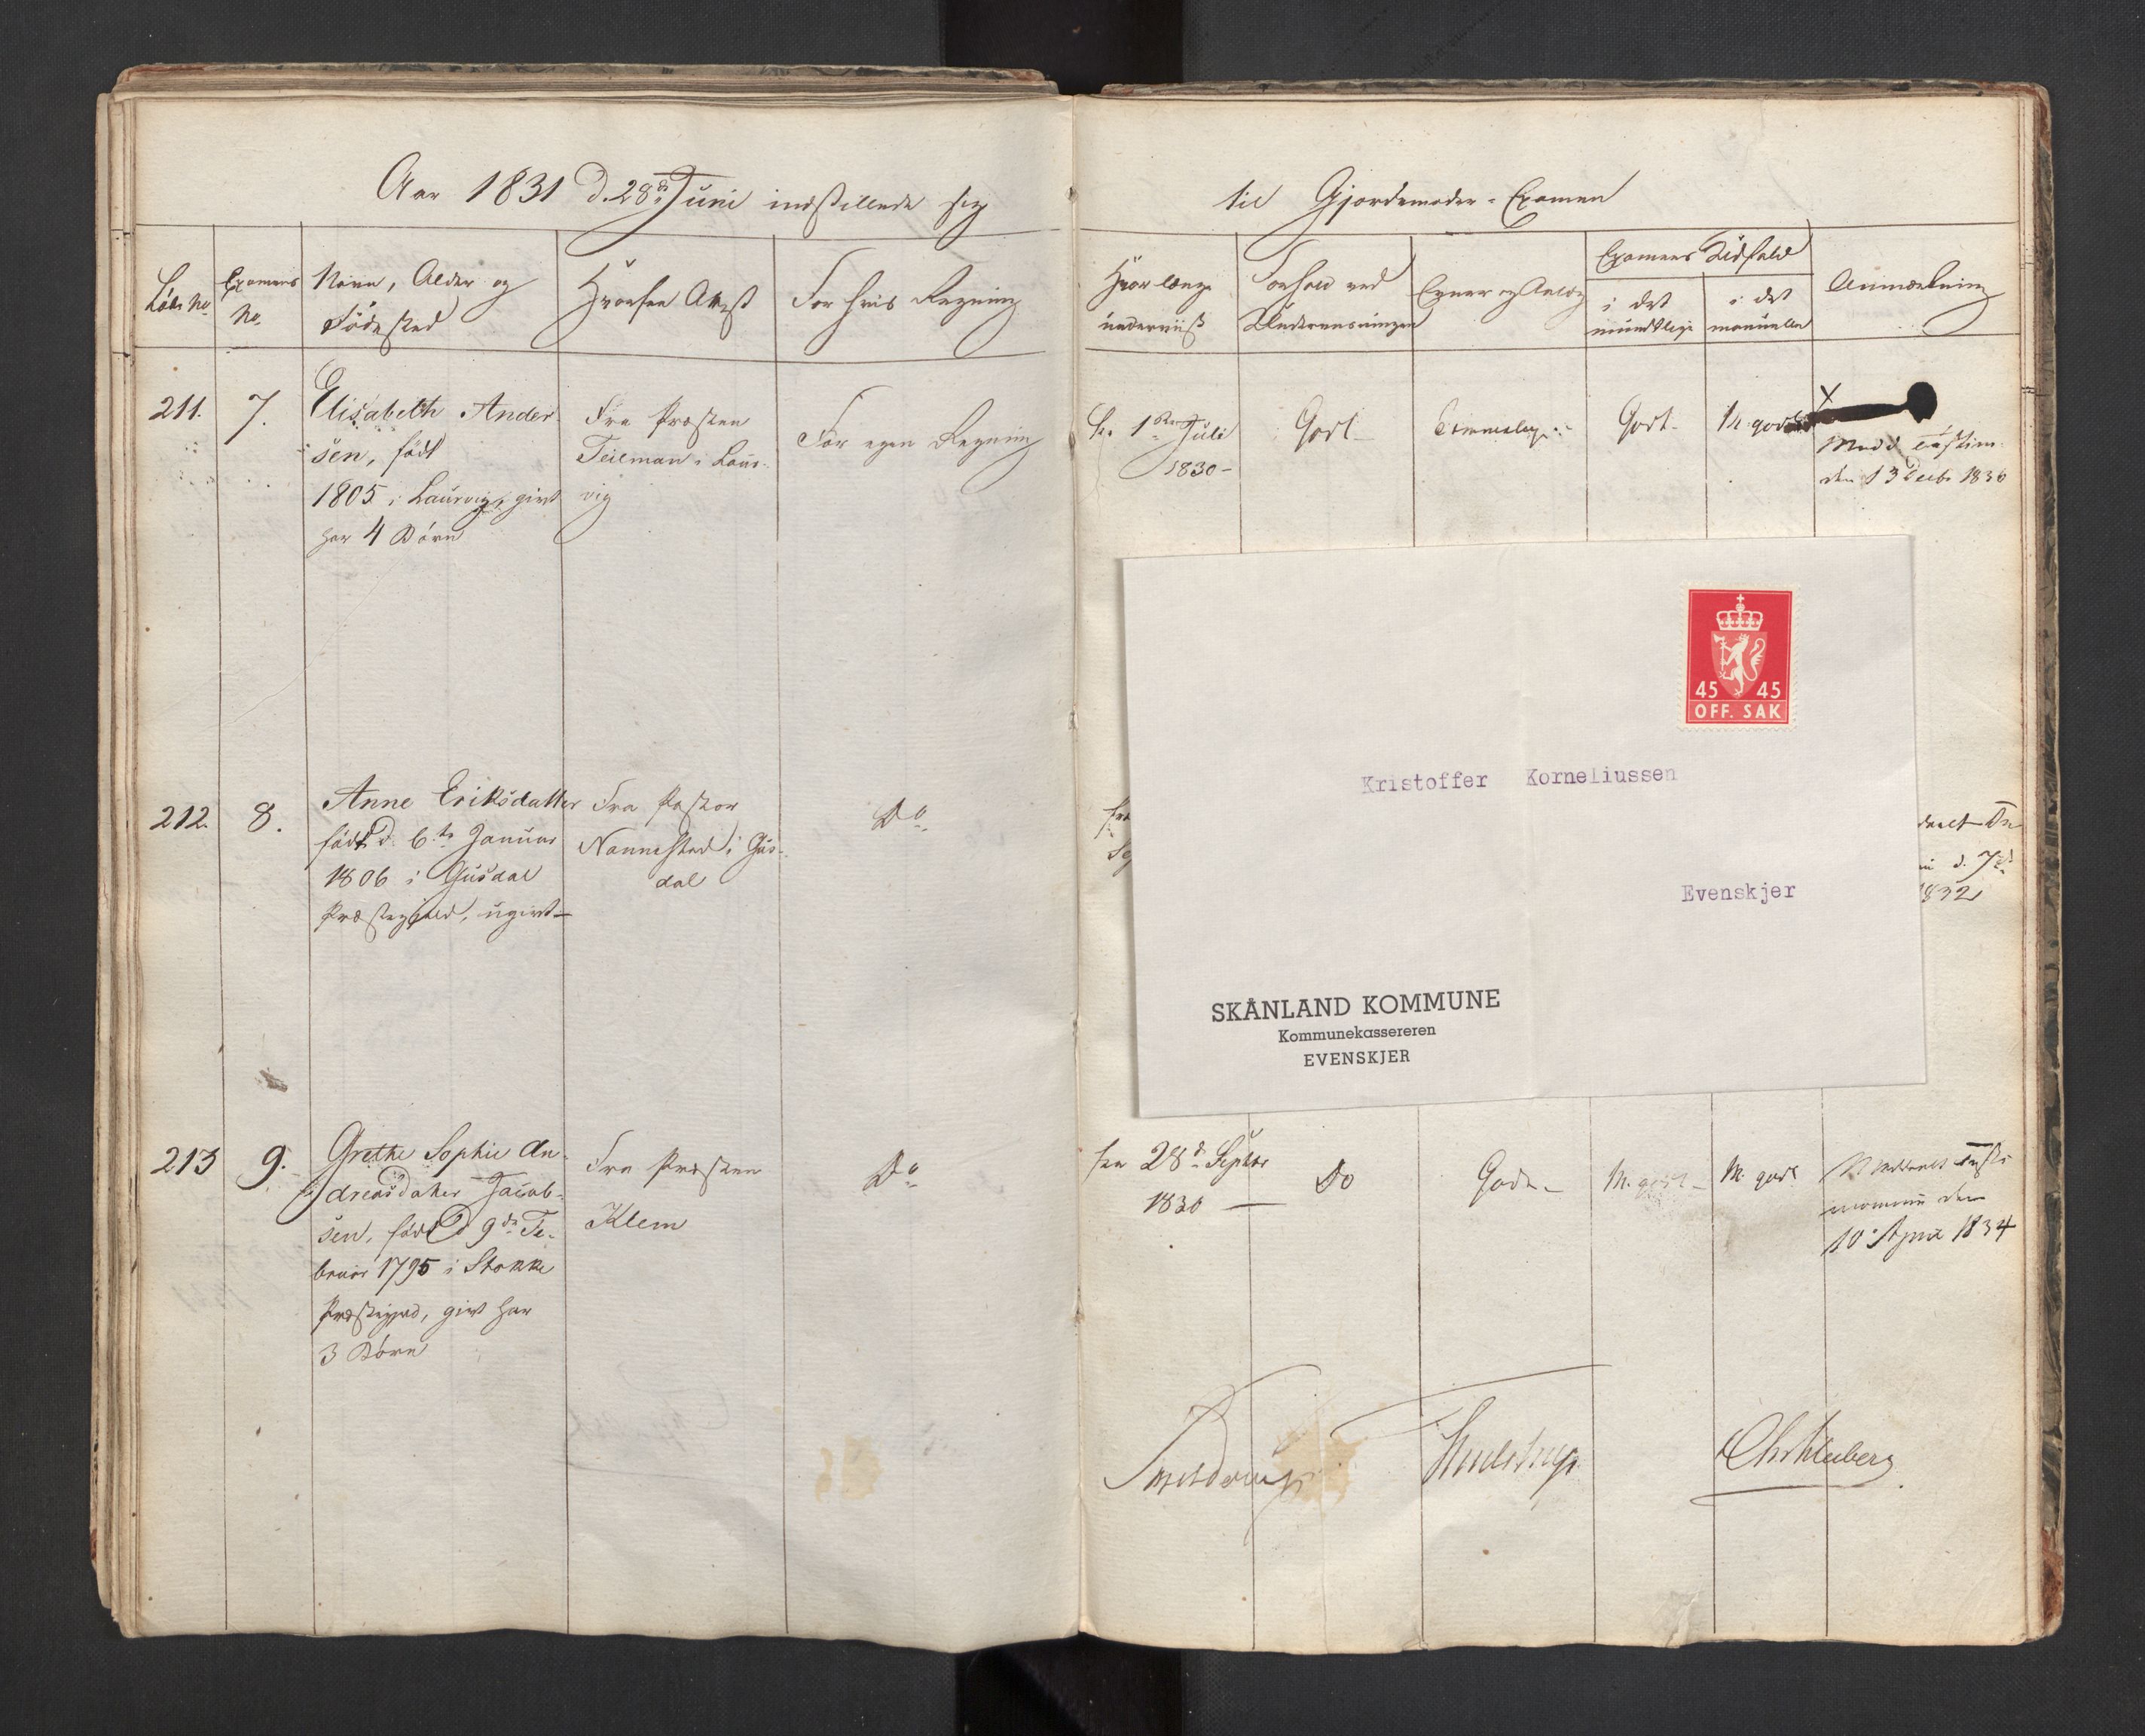 Aar 1831 d. 28de Juni indstillede sig
til Gjordemoder-Examen
Løbe No
Examens No.
Navn, Alder og
Fødested
Hvorfra Attest
For hvis Regning
Hvor længe
underviist
Forhold ved
Underviisningen
Evner og Anlæg
Examens Udfald
i det
mundtlige
i det
manuelle
Anmærkning
211.
7.
Elisabeth Ander-
sen, født
1805 i Laurvig, givt
har 4 Børn
Fra Præsten
Teilman i Laur-
vig
For egen Regning
fra 1ste Juli
1830 -
Godt
Godt
M. godt
X
den 13 Decbr 1836
212.
8.
Anne Eriksdatter
født d. 6te Januar
1806 i Gusdal
Præstegjeld, ugivt
Fra Pastor
Nannestad i Gus-
dal
Do
1832
213
9.
Grethe Sophie An-
dreasdatter Jacob-
sen, født d 9de Fe-
bruar 1795 i Stokke
Præstegjeld, givt har
3 Børn
Fra Præsten
Klem
Do
fra 28de Septbr
1830
Do
Gode
M. godt
M. godt
den
10 April 1834
Kristoffer Korneliussen
Evenskjer
SKÅNLAND KOMMUNE
Kommunekassereren
EVENSKJER
45 45
OFF. SAK